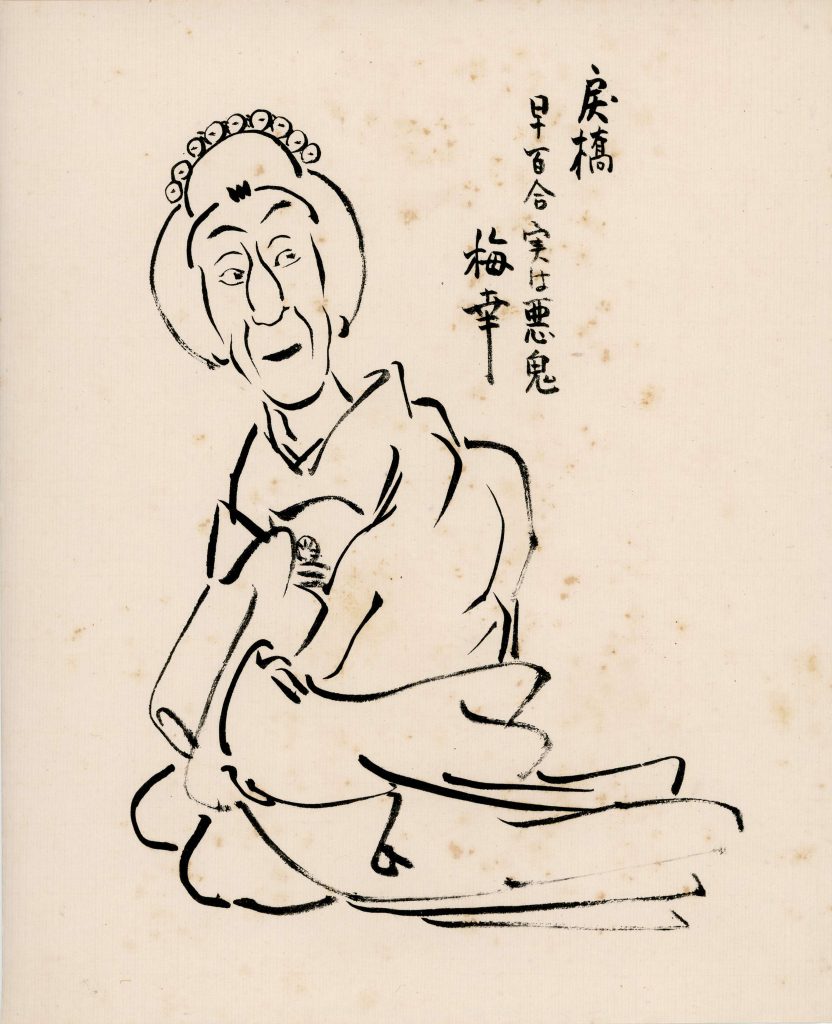 戻橋
早百合実は悪鬼
梅幸